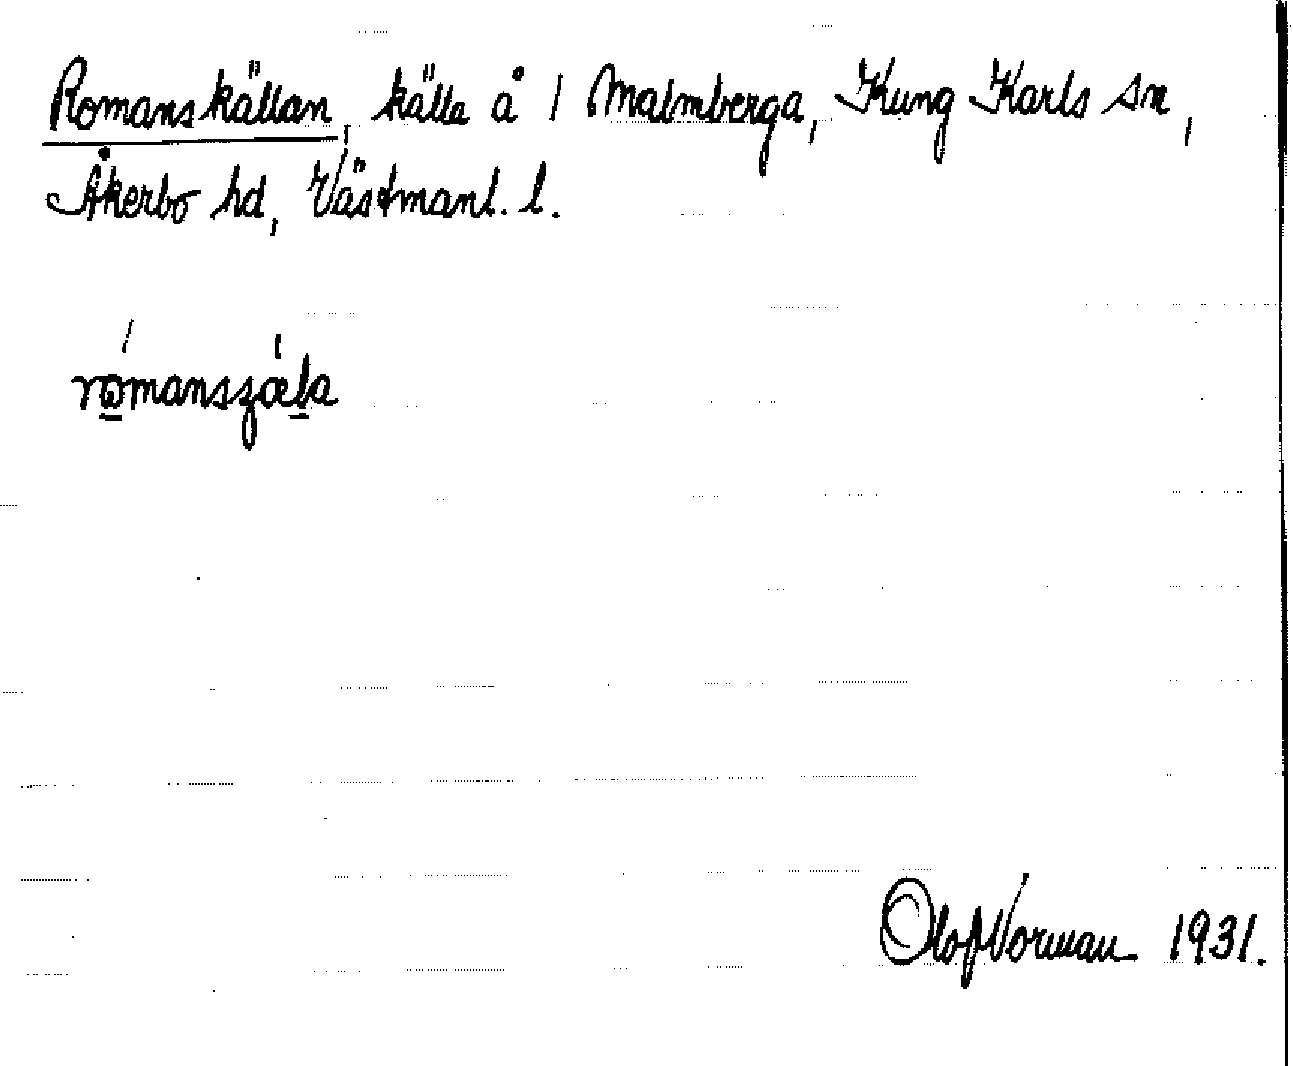 Romanskällan, källa å 1 Malmberga, Kung Karls sn,
Åkerbo hd, Västmanl. l.
rómanszǽla
Olof Norman 1931.